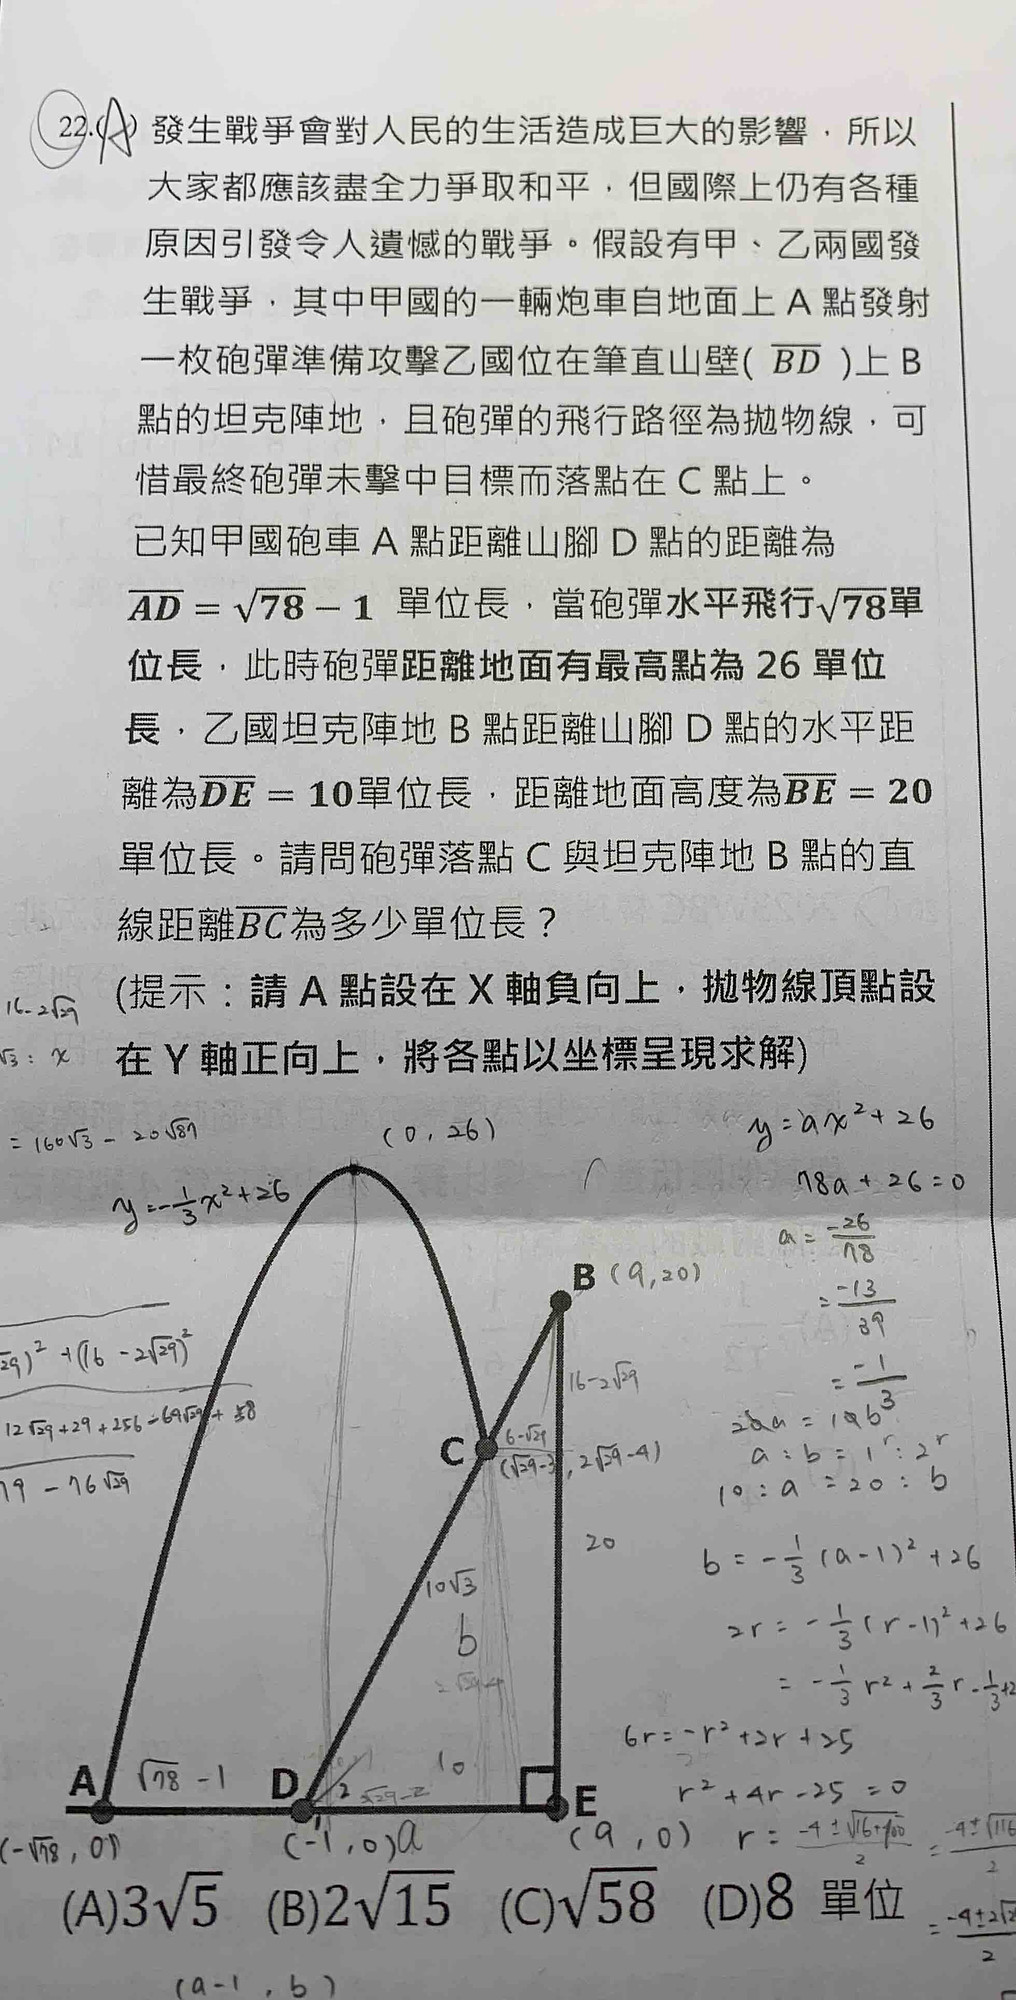 22.(A) 發生戰爭會對人民的生活造成巨大的影響，所以
大家都應該盡全力爭取和平，但國際上仍有各種
原因引發令人遺憾的戰爭。假設有甲、乙兩國發
生戰爭，其中甲國的一輛炮車自地面上 A 點發射
一枚砲彈準備攻擊乙國位在筆直山壁( BD )上 B
點的坦克陣地，且砲彈的飛行路徑為拋物線，可
惜最終砲彈未擊中目標而落點在 C 點上。
已知甲國砲車 A 點距離山腳 D 點的距離為
AD = √78 − 1 單位長，當砲彈水平飛行√78單
位長，此時砲彈距離地面有最高點為 26 單位
長，乙國坦克陣地 B 點距離山腳 D 點的水平距
離為DE = 10單位長，距離地面高度為BE = 20
單位長。請問砲彈落點 C 與坦克陣地 B 點的直
線距離BC為多少單位長？
(提示：請 A 點設在 X 軸負向上，拋物線頂點設
16-2√29
√3 : x
在 Y 軸正向上，將各點以坐標呈現求解)
= 160√3 - 20√87
(0, 26)
y=ax²+26
y=-1/3x²+26
78a+26=0
a=-26/78
=-13/39
=-1/3
B (9,20)
29)²+(16-2√29)²
16-2√29
12√29+29+256-64√29+
- 76√29
C
6-√29
(√29-3, 2√29-4)
20a=10b
a:b=1r:2r
10:a=20:b
20
b=-1/3(a-1)²+26
10√3
b
2r=-1/3(r-1)²+26
=-1/3r²+2/3r-1/3+2
6r=-r²+2r+25
r²+4r-25=0
A √78-1 D 10 E
(-√78,0) (-1,0) a (9,0)
r=-4±√16+100/2 =-4±√116/2
(A)3√5 (B)2√15 (C)√58 (D)8 單位
=-4±2√2
2
(a-1, b)